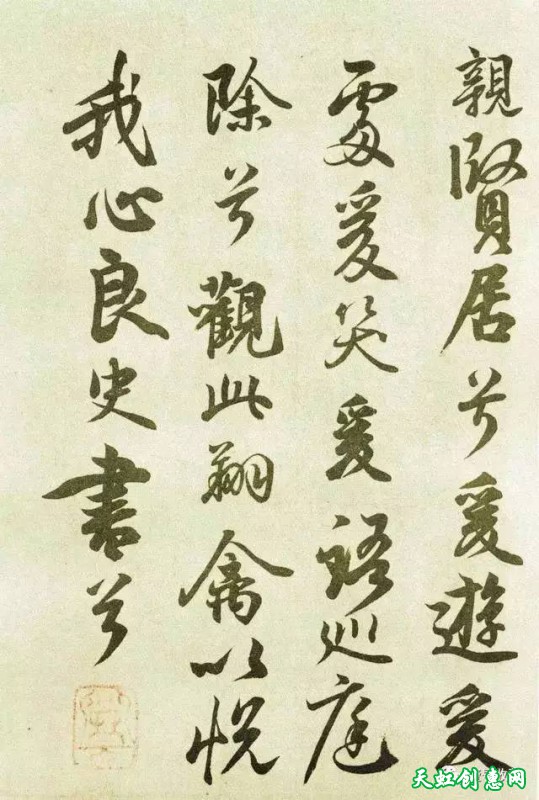 親賢居兮爰遊爰
處爰笑爰語巡庭
除兮觀此翔禽以悅
我心良史書兮
天虹创惠网